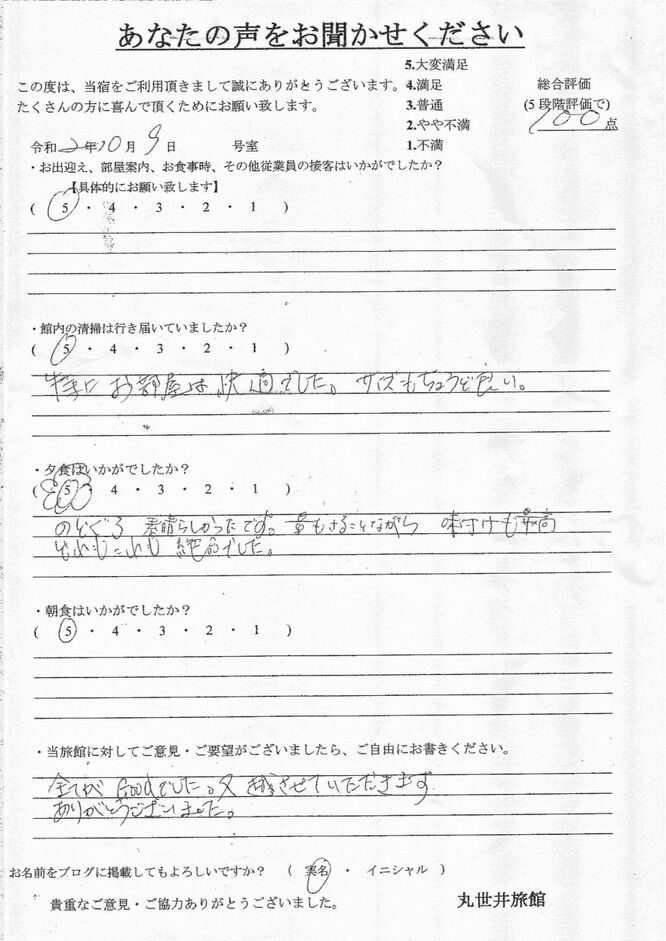 あなたの声をお聞かせください
5.大変満足
この度は、当宿をご利用頂きまして誠にありがとうございます。 4.満足 総合評価
たくさんの方に喜んで頂くためにお願い致します。 3.普通 (5段階評価で)
2.やや不満 100点
令和2年10月9日 号室 1.不満
・お出迎え、部屋案内、お食事時、その他従業員の接客はいかがでしたか?
【具体的にお願い致します】
( 5 ・ 4 ・ 3 ・ 2 ・ 1 )
・館内の清掃は行き届いていましたか?
( 5 ・ 4 ・ 3 ・ 2 ・ 1 )
特に お部屋は 快適でした。 サイズもちょうど良い。
・夕食はいかがでしたか?
( 5 ・ 4 ・ 3 ・ 2 ・ 1 )
のどぐろ 素晴らしかったです。量もさることながら 味付けも最高
どれもこれも 絶品でした。
・朝食はいかがでしたか?
( 5 ・ 4 ・ 3 ・ 2 ・ 1 )
・当旅館に対してご意見・ご要望がございましたら、ご自由にお書きください。
全てが Goodでした。又 越させていただきます
ありがとうございました。
お名前をブログに掲載してもよろしいですか? ( 実名 ・ イニシャル )
貴重なご意見・ご協力ありがとうございました。 丸世井旅館